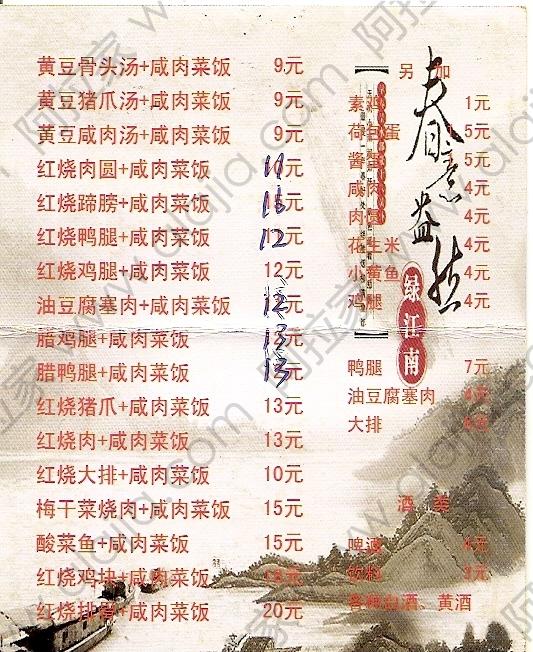 黄豆骨头汤+咸肉菜饭 9元
黄豆猪爪汤+咸肉菜饭 9元
黄豆咸肉汤+咸肉菜饭 9元
红烧肉圆+咸肉菜饭 11 元
红烧蹄膀+咸肉菜饭 元
红烧鸭腿+咸肉菜饭 12 元
红烧鸡腿+咸肉菜饭 12元
油豆腐塞肉+咸肉菜饭 12 元
腊鸡腿+咸肉菜饭 13 元
腊鸭腿+咸肉菜饭 13 元
红烧猪爪+咸肉菜饭 13元
红烧肉+咸肉菜饭 13元
红烧大排+咸肉菜饭 10元
梅干菜烧肉+咸肉菜饭 15元
酸菜鱼+咸肉菜饭 15元
红烧鸡块+咸肉菜饭 18元
红烧排骨+咸肉菜饭 20元
另 加
素鸡 1元
荷包蛋 5元
酱蛋 5元
咸肉 4元
肉圆 4元
花生米 4元
小黄鱼 4元
鸡腿 4元
鸭腿 7元
油豆腐塞肉 4元
大排 元
酒 类
啤酒 4元
饮料 3元
各种白酒、黄酒
春意盎然
绿江南
阿拉家 www.alajia.com